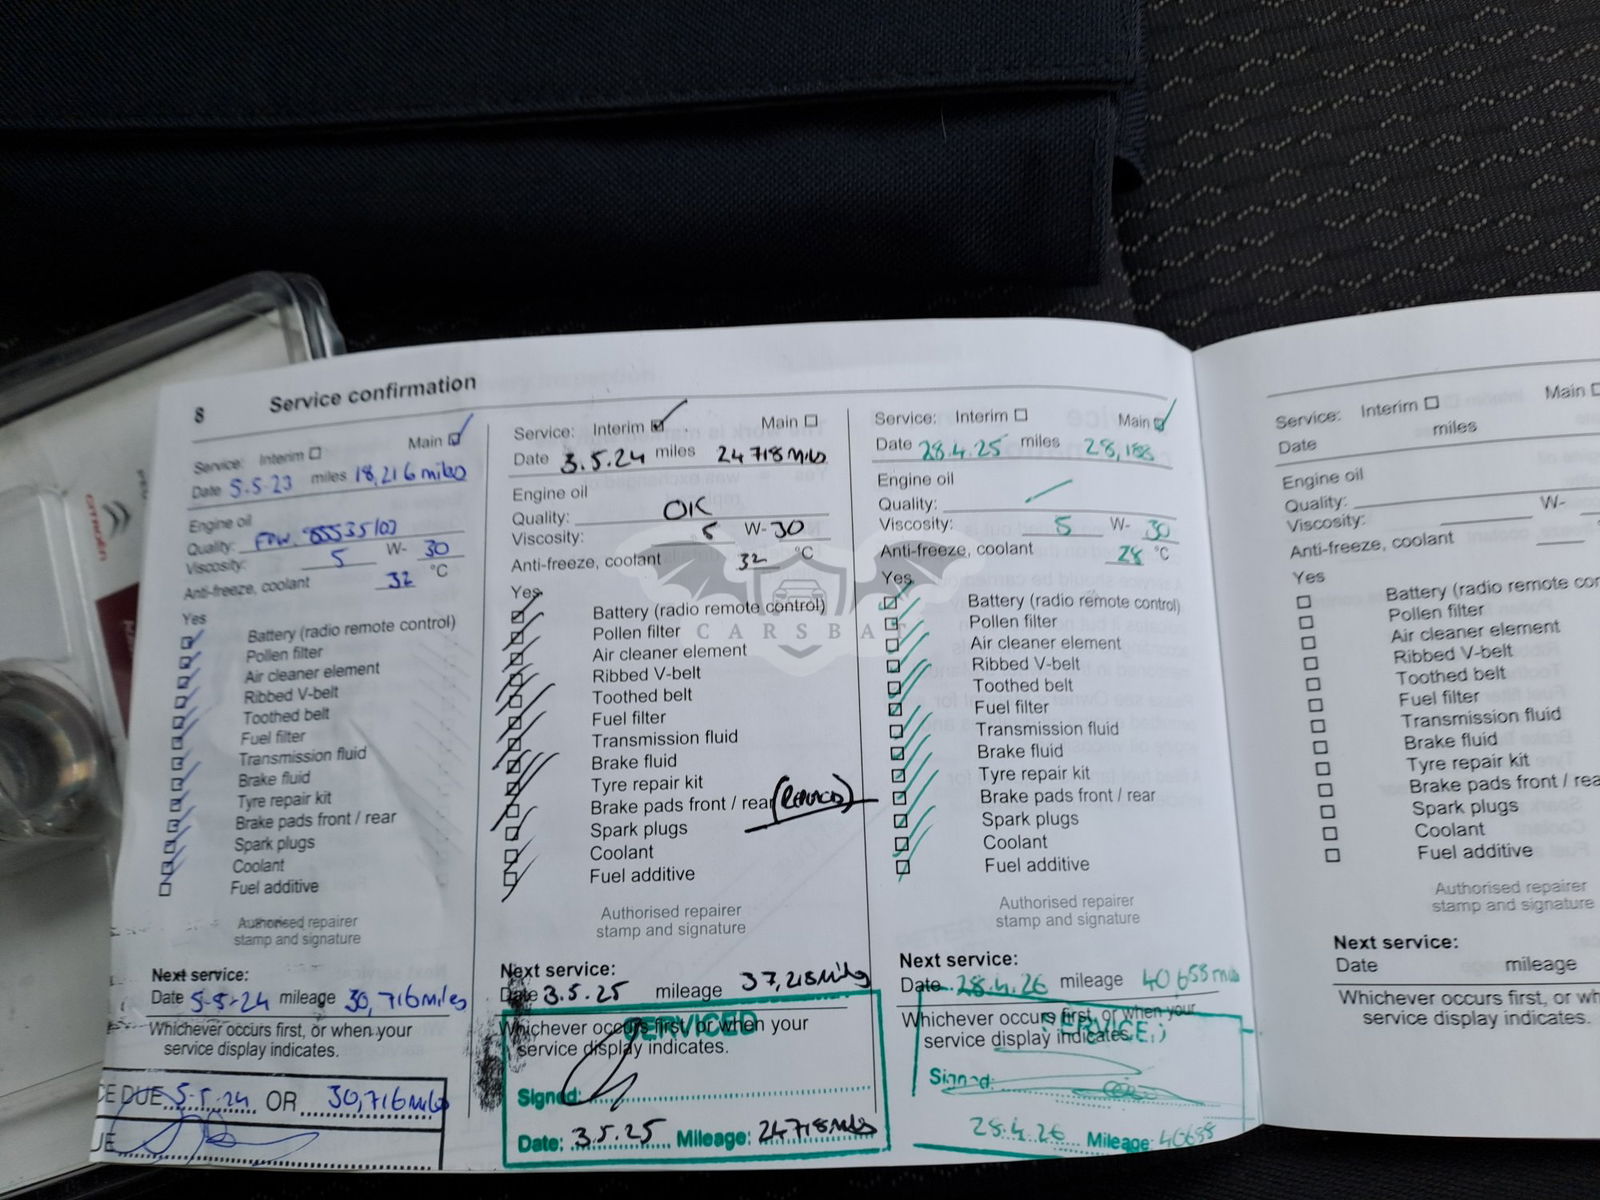 8 Service confirmation
Service: Interim Main
Date 5.5.23 miles 18,216 miles
Engine oil
Quality:
Viscosity: 5 W- 30
Anti-freeze, coolant 32 °C
Yes
Battery (radio remote control)
Pollen filter
Air cleaner element
Ribbed V-belt
Toothed belt
Fuel filter
Transmission fluid
Brake fluid
Tyre repair kit
Brake pads front / rear
Spark plugs
Coolant
Fuel additive
Authorised repairer
stamp and signature
Next service:
Date 5.5.24 mileage 30,716 miles
Whichever occurs first, or when your
service display indicates.
CE DUE 5.5.24 OR 30,716 miles
UE
Service: Interim Main
Date 3.5.24 miles 24718 miles
Engine oil
Quality: OK
Viscosity: 5 W- 30
Anti-freeze, coolant 32 °C
Yes
Battery (radio remote control)
Pollen filter
Air cleaner element
Ribbed V-belt
Toothed belt
Fuel filter
Transmission fluid
Brake fluid
Tyre repair kit
Brake pads front / rear
Spark plugs
Coolant
Fuel additive
Authorised repairer
stamp and signature
Next service:
Date 3.5.25 mileage 37,218 miles
Whichever occurs first, or when your
service display indicates.
SERVICED
Signed:
Date: 3.5.25 Mileage: 24718 miles
Service: Interim Main
Date 28.4.25 miles 28,188
Engine oil
Quality:
Viscosity: 5 W- 30
Anti-freeze, coolant 28 °C
Yes
Battery (radio remote control)
Pollen filter
Air cleaner element
Ribbed V-belt
Toothed belt
Fuel filter
Transmission fluid
Brake fluid
Tyre repair kit
Brake pads front / rear
Spark plugs
Coolant
Fuel additive
Authorised repairer
stamp and signature
Next service:
Date 28.4.26 mileage 40688 miles
Whichever occurs first, or when your
service display indicates.
Signed:
28.4.26 Mileage: 40688
Service: Interim Main
Date miles
Engine oil
Quality:
Viscosity: W-
Anti-freeze, coolant
Yes
Battery (radio remote co
Pollen filter
Air cleaner element
Ribbed V-belt
Toothed belt
Fuel filter
Transmission fluid
Brake fluid
Tyre repair kit
Brake pads front / rea
Spark plugs
Coolant
Fuel additive
Authorised repairer
stamp and signature
Next service:
Date mileage
Whichever occurs first, or wh
service display indicates.
CITROËN
CARSBAT